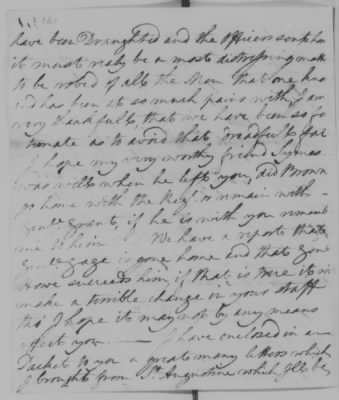 have been Draughted and the officers sent home
it must realy be a most distressing matter
to be robed of all the Men that one has
and has been at so much pains with, I am
very thankfull that we have been so for
tunate as to avoid that dreadfull fate
I hope my very worthy friend Symes
was well when he left you, did Brown
go home with the Regt or remain with
Genl Grant, if he is with you rememb
me to him. We have a report that
Genl Gage is gone home and that Genl
Howe succeeds him, if that is true it will
make a terrible change in your staff
tho' I hope it may not by any means
effect you. I have enclosed in a
Packet to you a great many letters which
I brought from St Augustine which I'll be